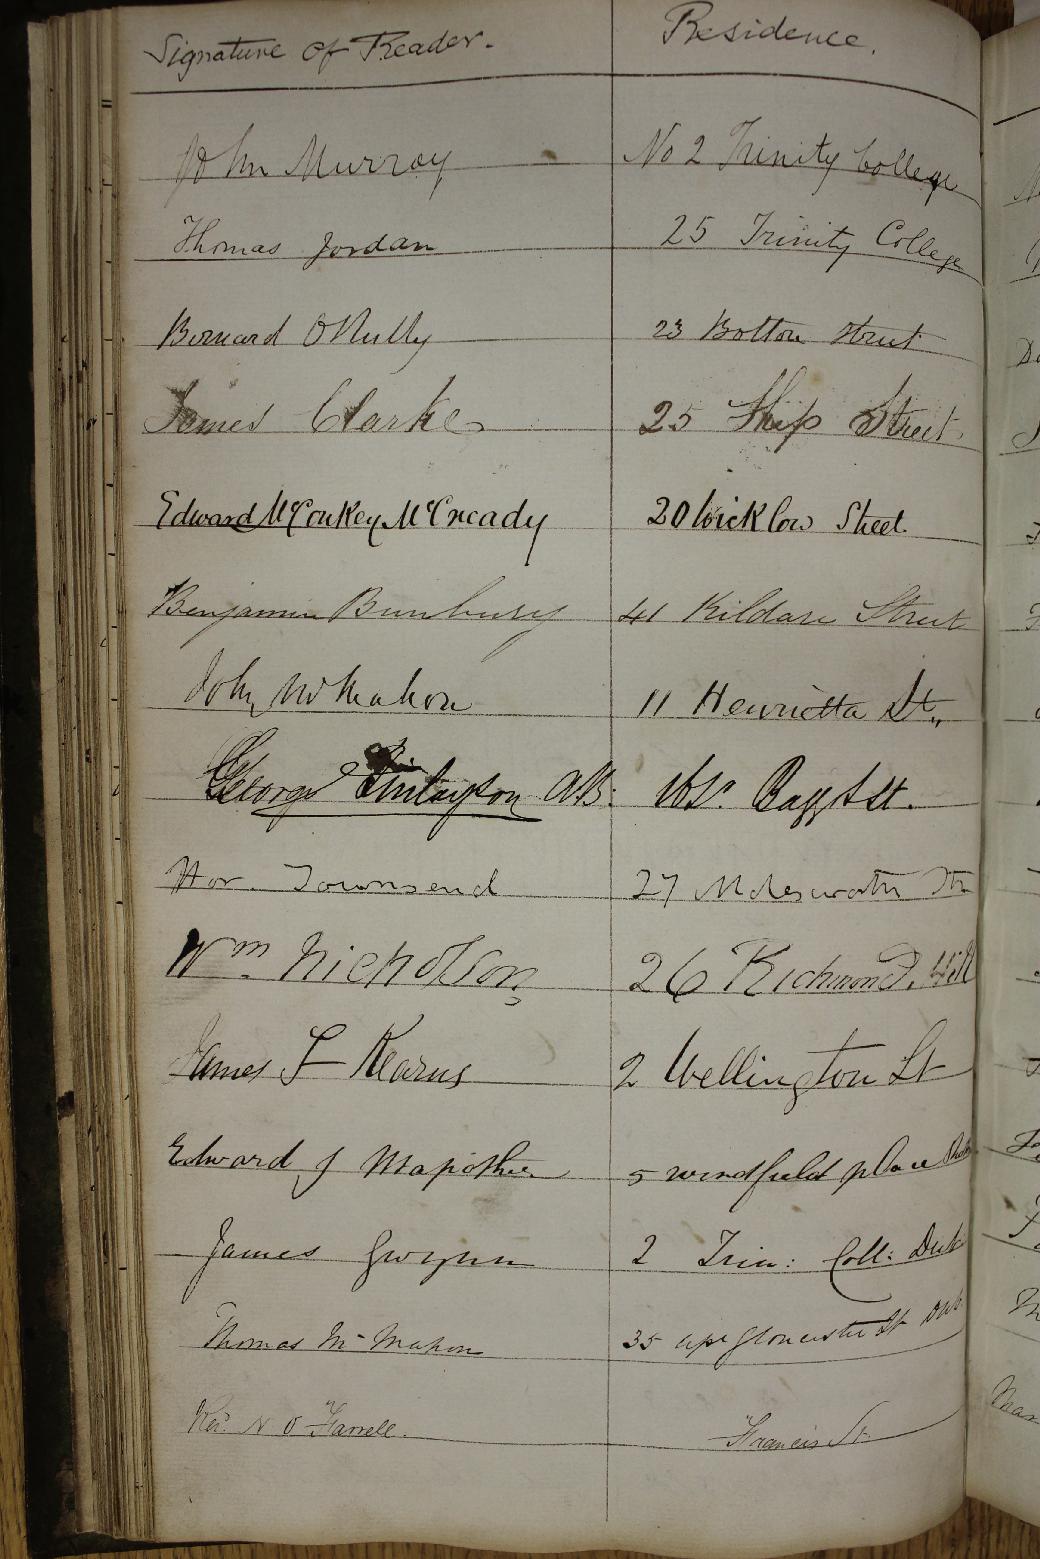 Signature of Reader. Residence.
John Murray No 2 Trinity College
Thomas Jordan 25 Trinity College
Bernard O'Reilly 23 Bolton Street
James Clarke 25 Ship Street
Edward McConkey McCready 20 Wicklow Street
Benjamin Bunbury 41 Kildare Street
John McMahon 11 Henrietta St.
George Finlayson AB. Baggt St.
Hor. Townsend 27 Molesworth Str
Wm Nicholson 26 Richmond Hill
James F Kearns 2 Wellington St
Edward J Mapother 5 Windfield place
James Gwynn 2 Trin: Coll: Dub
Thomas Mc Mahon 35 upr Gloucester St Dub.
Rev. N O Farrell. Francis St.